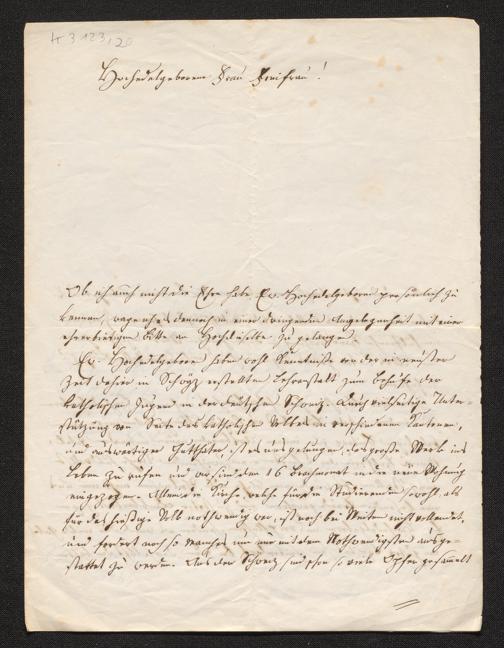 H 3 123,20
Hochedelgeborene Frau Freifrau!
Ob ich auch nicht die Ehre habe Ew. Hochedelgeboren persönlich zu
kennen, wage ich es dennoch in einer dringenden Angelegenheit mit einer
ehrerbietigen Bitte an Hochdieselbe zu gelangen.
Ew. Hochedelgeboren haben wohl Kenntniß von der in neuester
Zeit dahier in Schwyz erstellten Lehranstalt zum Behufe der
katholischen Jugend in der deutschen Schweiz. Durch vielseitige Unter-
stützung von Seite des katholischen Volkes in verschiedenen Kantonen,
und auswärtiger Gutthäter, ist es uns gelungen, das große Werk ins
Leben zu rufen und wir sind den 16 Brachmonat in die neue Wohnung
eingezogen. Allein die Kirche, welche für die Studierenden sowohl, als
für das hiesige Volk nothwendig war, ist noch bei Weitem nicht vollendet,
und fordert noch so Manches um nur mit dem Nothwendigsten ausge-
stattet zu werden. Aus der Schweiz sind schon so viele Opfer gesammelt